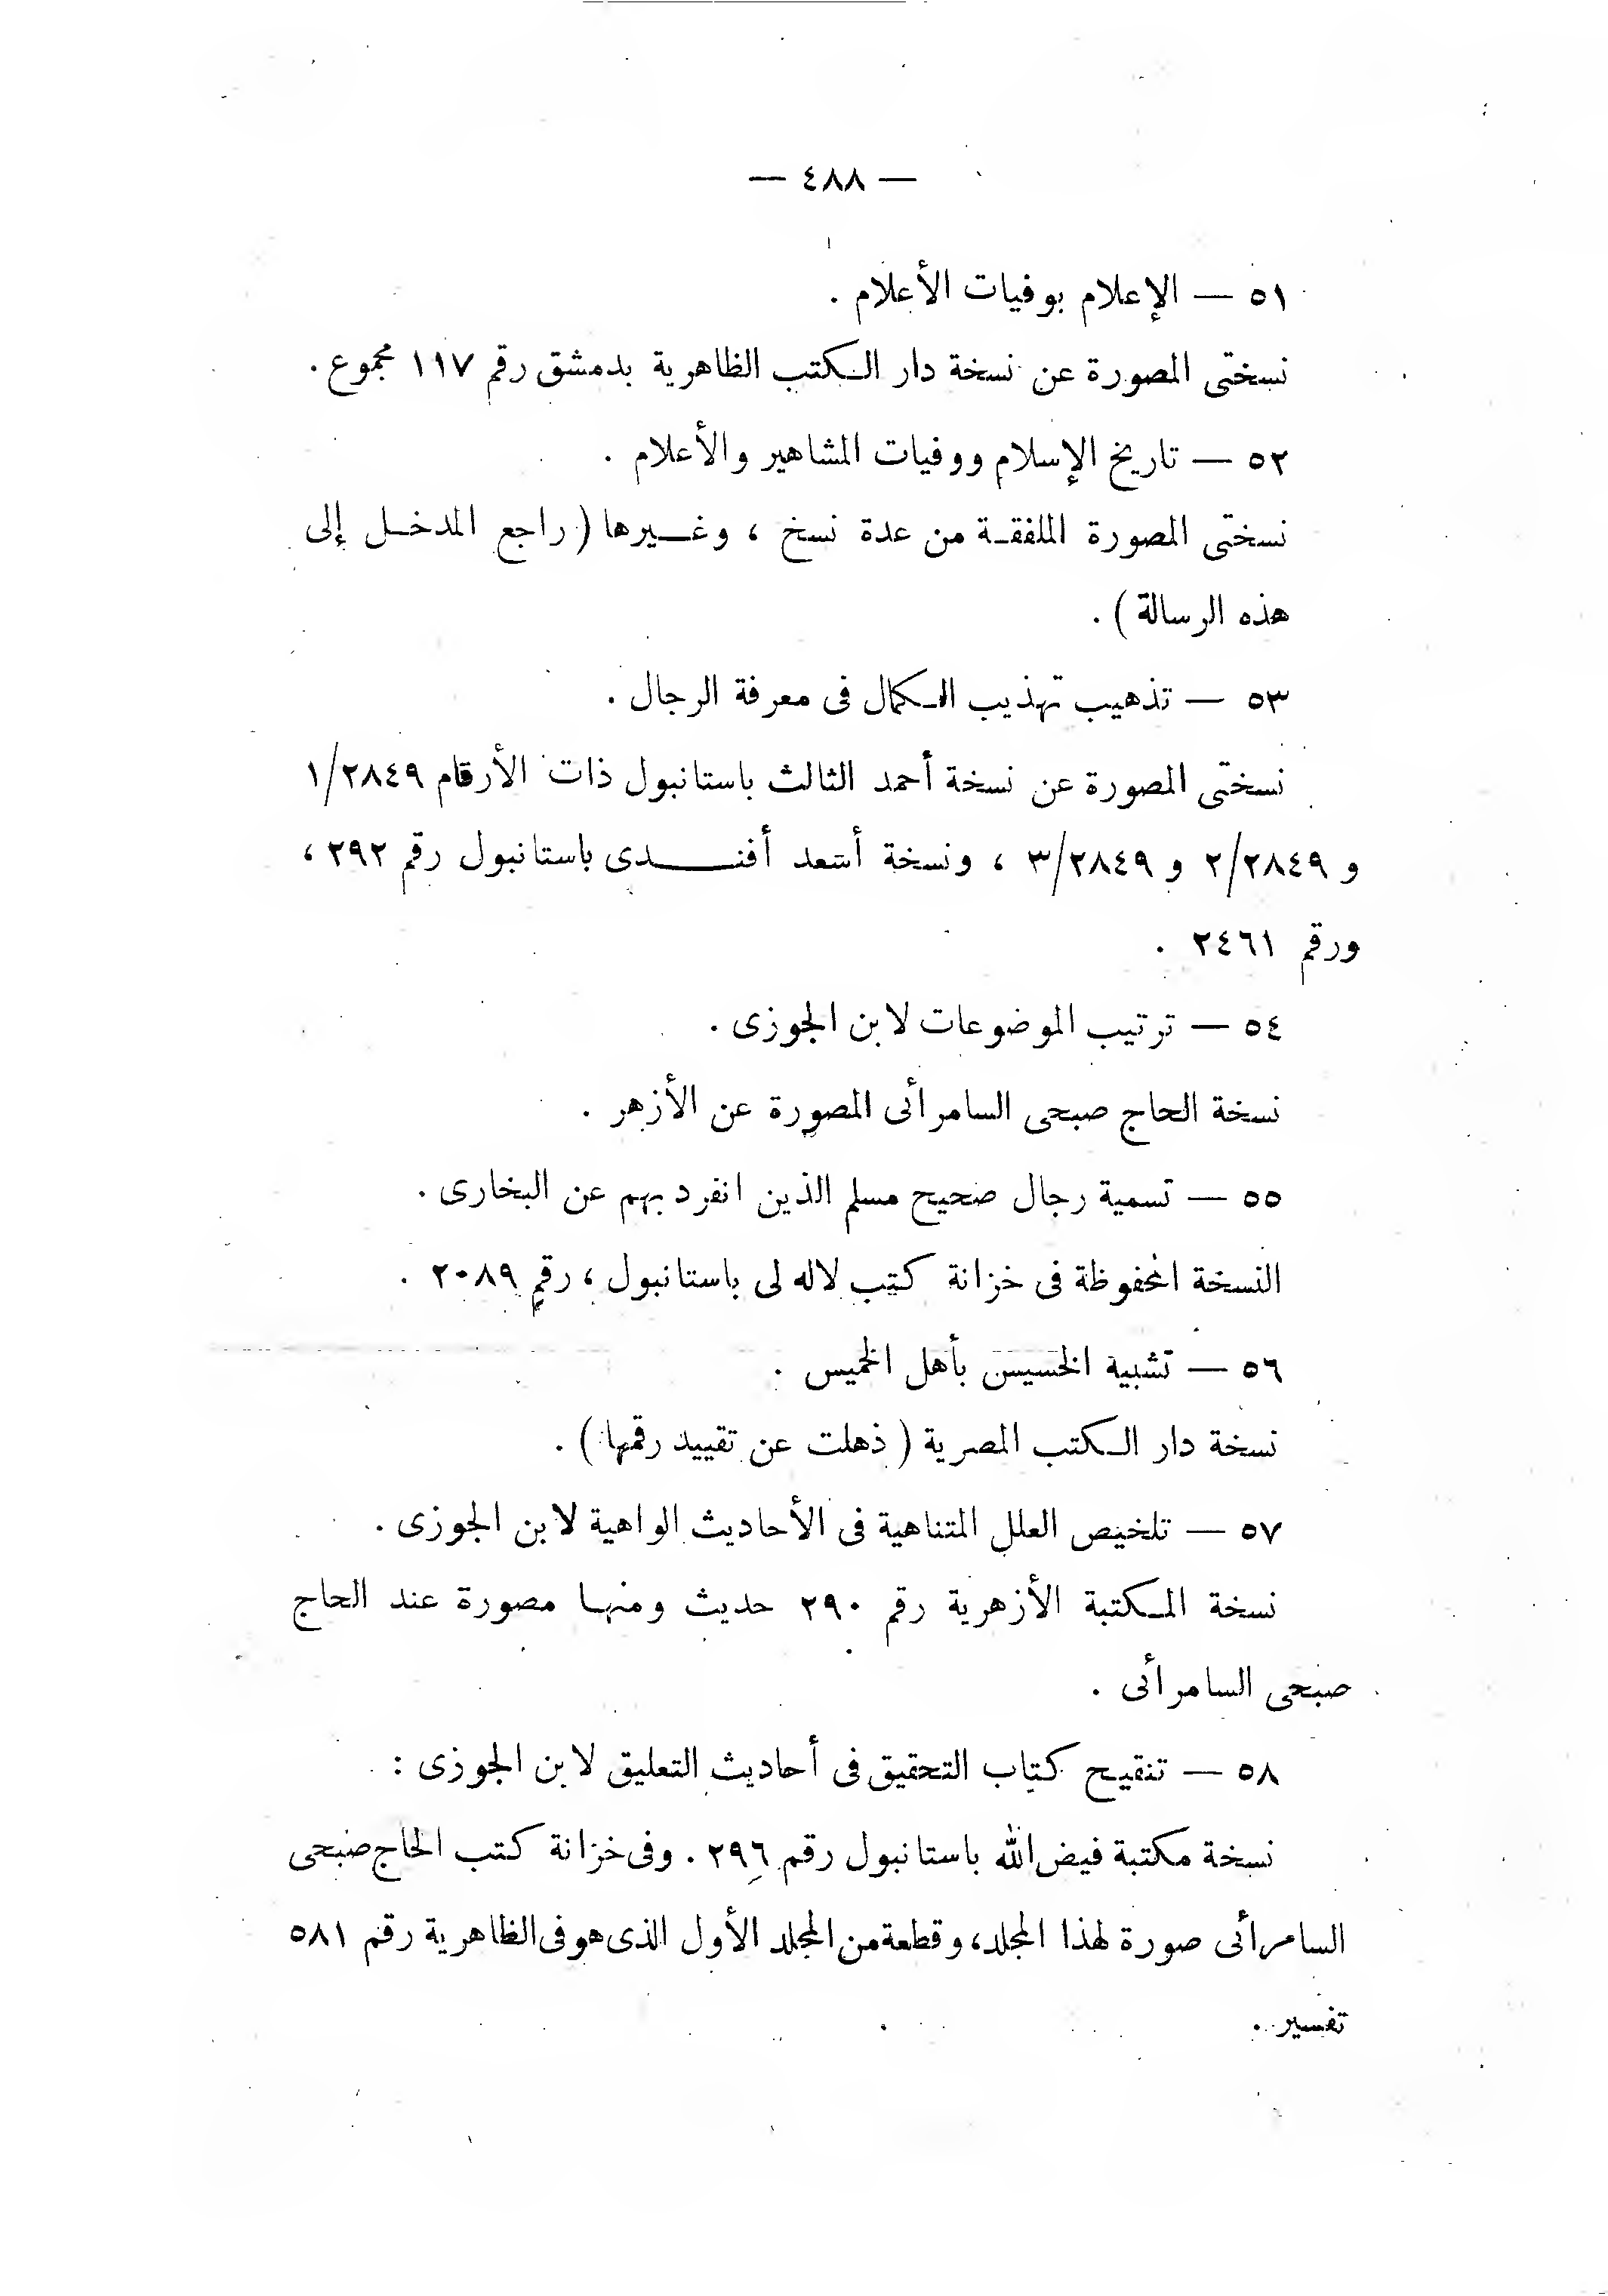 — ٤٨٨ —
٥١ — الإعلام بوفيات الأعلام .
نسختى المصورة عن نسخة دار الكتب الظاهرية بدمشق رقم ١١٧ مجموع .
٥٢ — تاريخ الإسلام ووفيات المشاهير والأعلام .
نسختى المصورة الملفقة من عدة نسخ ، وغيرها ( راجع المدخل إلى
هذه الرسالة ) .
٥٣ — تذهيب تهذيب الكمال فى معرفة الرجال .
نسختى المصورة عن نسخة أحمد الثالث باستانبول ذات الأرقام ١/٢٨٤٩
و ٢/٢٨٤٩ و ٣/٢٨٤٩ ، ونسخة أسعد أفندى باستانبول رقم ٢٩٢ ،
ورقم ٢٤٦١ .
٥٤ — ترتيب الموضوعات لابن الجوزى .
نسخة الحاج صبحى السامرأئى المصورة عن الأزهر .
٥٥ — تسمية رجال صحيح مسلم الذين انفرد بهم عن البخارى .
النسخة المحفوظة فى خزانة كتب لاله لى باستانبول ، رقم ٢٠٨٩ .
٥٦ — تشبية الخسيس بأهل الخميس .
نسخة دار الكتب المصرية ( ذهلت عن تقييد رقمها ) .
٥٧ — تلخيص العلل المتناهية فى الأحاديث الواهية لابن الجوزى .
نسخة المكتبة الأزهرية رقم ٢٩٠ حديث ومنها مصورة عند الحاج
صبحى السامرأئى .
٥٨ — تنقيح كتاب التحقيق فى أحاديث التعليق لابن الجوزى :
نسخة مكتبة فيض الله باستانبول رقم ٢٩٦ . وفى خزانة كتب الحاج صبحى
السامرأئى صورة لهذا المجلد، وقطعة من المجلد الأول الذى هو فى الظاهرية رقم ٥٨١
تفسير .